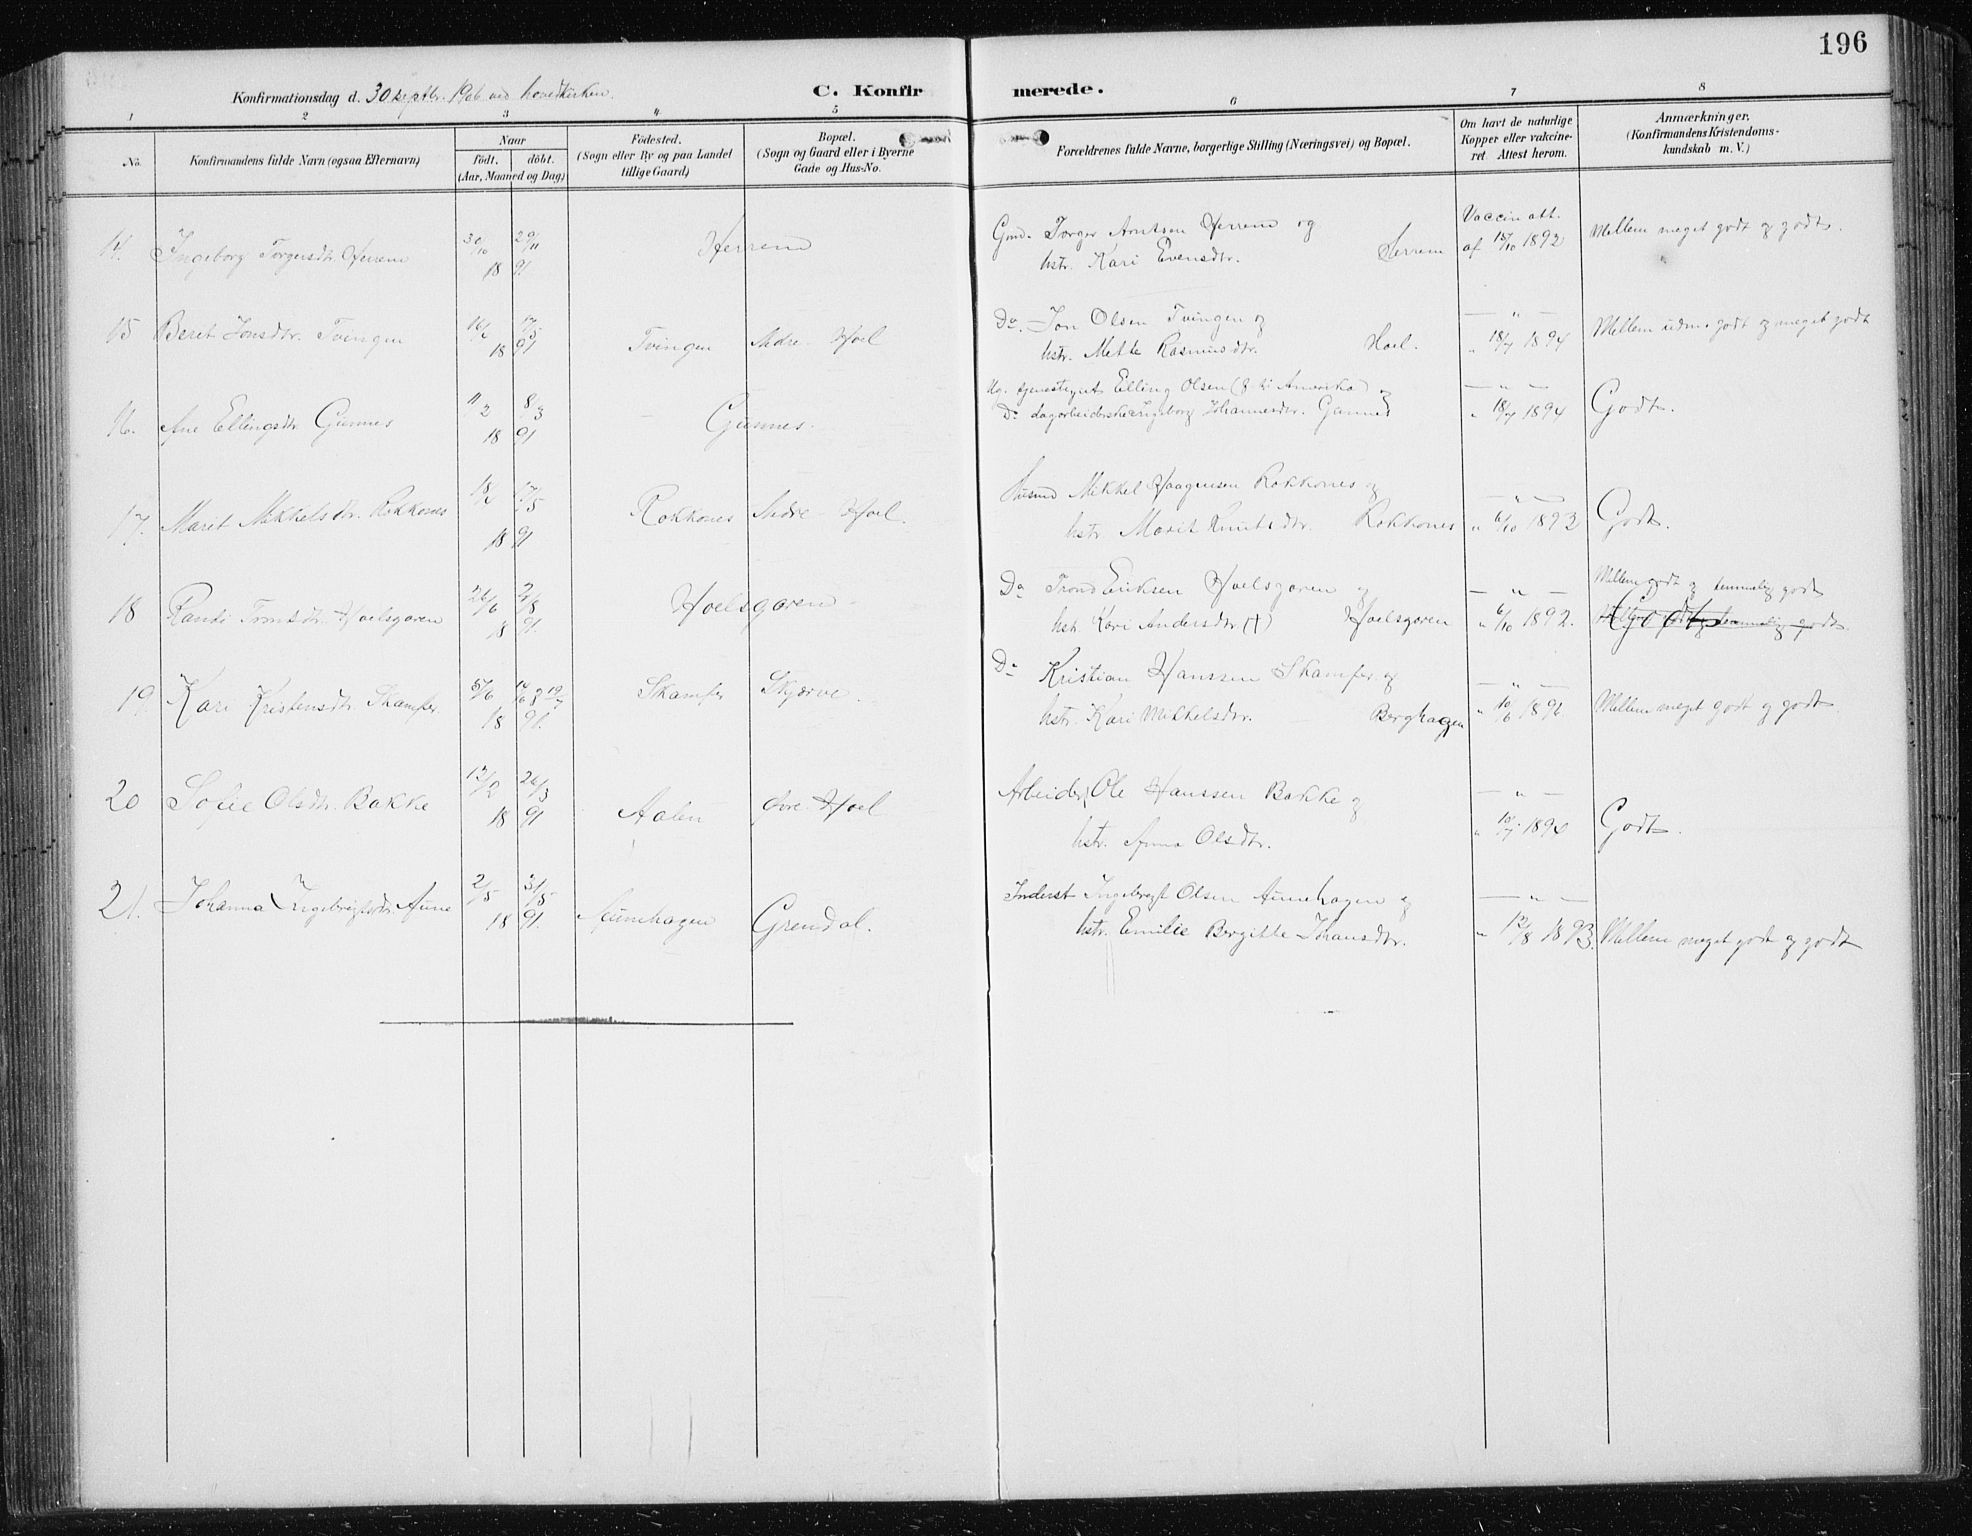 196
Konfirmationsdag d. 30 septbr. 1906 ved hovedkirken.
C. Konfirmerede.
1 2 3 4 5 6 7 8
No.
Konfirmandens fulde Navn (ogsaa Efternavn)
Naar
født. døbt.
(Aar, Maaned og Dag)
Fødested.
(Sogn eller By og paa Landet
tillige Gaard)
Bopæl.
(Sogn og Gaard eller i Byerne
Gade og Hus-No.
Forældrenes fulde Navne, borgerlige Stilling (Næringsvei) og Bopæl.
Om havt de naturlige
Kopper eller vakcine-
ret Attest herom.
Anmærkninger.
(Konfirmandens Kristendoms-
kundskab m. V.)
14. Ingeborg Torgersdtr. Herrem 30/10 29/11 18 91 Herrem
Gmd. Torger Arntsen Herrem og
hstr. Kari Evensdtr. Herrem
Vaccin. att.
af 15/10 1892
Mellem meget godt og godt.
15 Beret Jonsdtr. Tvingen 18 91 Tvingen Nedre Hoel
Do. Jon Olsen Tvingen og
hstr. Mette Rasmusdtr. Hoel.
— " —
" 18/7 1894
Mellem udm. godt og meget godt
16. Ane Ellingsdtr Gunnes 11/2 8/3 18 91 Gunnes.
Ug. tjenestegut Elling Olsen (f. til Amerika) og
Do dagarbeiderske Ingeborg Johannesdtr. Gunnes
— " —
" 18/7 1894
Godt.
17. Marit Mikkelsdtr. Rokkones 18/4 17/5 18 91 Rokkones Nedre Hoel.
Husmd Mikkel Haagensen Rokkones og
hstr. Marit Knutsdtr. Rokkones
— " —
" 6/10 1892
Godt.
18 Randi Tronsdtr. Hoelsgaren 26/6 2/8 18 91. Hoelsgaren
Do Trond Eriksen Hoelsgaren og
hstr. Kari Andersdtr (†) Hoelsgaren
— " —
" 6/10 1892.
Mellem godt og temmelig godt
Godt
19 Kari Kristensdtr. Skamfer 5/6 18 91. Skamfer Skjørve.
Do Kristian Hanssen Skamfer og
hstr. Kari Mikkelsdtr. Berghagen
— " —
" 10/6 1896
Mellem meget godt og godt.
20 Sofie Olsdtr. Bakke 12/2 26/3 18 91 Aalen Øvre Hoel
Arbeider Ole Hanssen Bakke og
hstr. Anna Olsdtr.
— " —
1896
Godt.
21. Johanna Ingebrigtsdtr. Aune 2/5 31/5 18 91. Aunehagen Grendal.
Inderst Ingebrigt Olsen Aunehagen og
hstr. Emilie Bergitte Johansdtr.
— " —
" 12/8 1893.
Mellem meget godt og godt